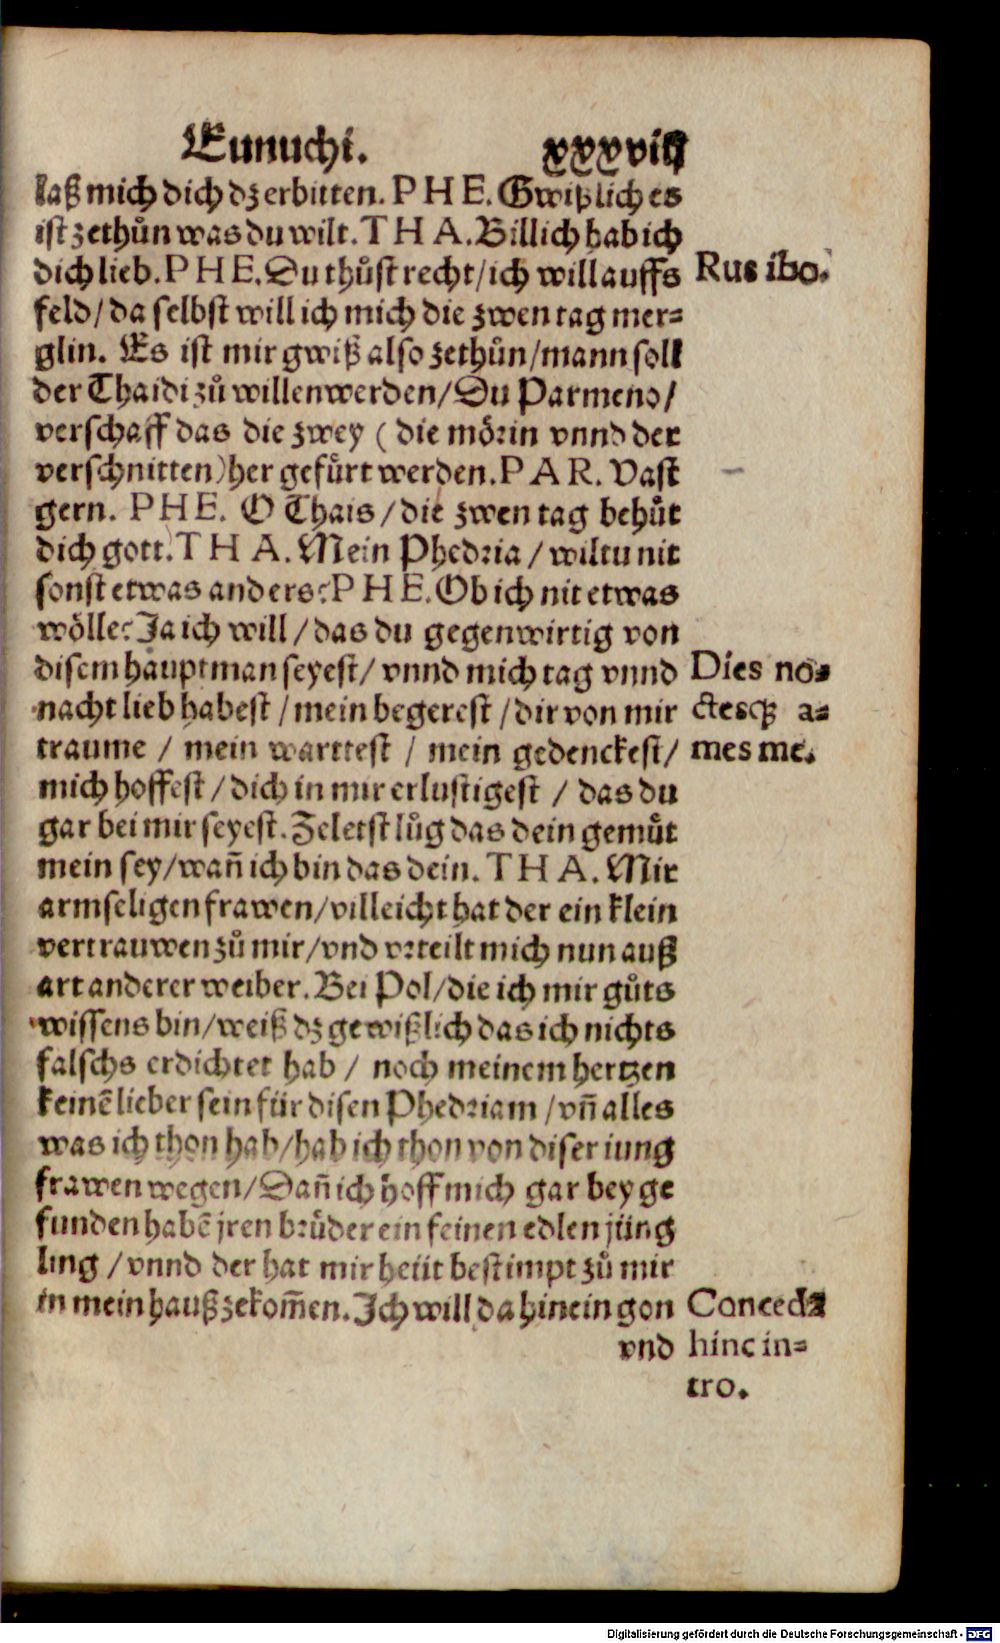 Eunuchi. xxxviij
laß mich dich dz erbitten. PHE. Gwißlich es
ist zethůn was du wilt. THA. Billich hab ich
dich lieb. PHE. Du thůst recht/ ich will auffs
Rus ibo.
feld/ da selbst will ich mich die zwen tag mer⸗
glin. Es ist mir gwiß also zethůn/ mann soll
der Thaidi zů willen werden/ Du Parmeno/
verschaff das die zwey (die mörin vnnd der
verschnitten) her gefůrt werden. PAR. Vast
gern. PHE. O Thais/ die zwen tag behůt
dich gott. THA. Mein Phedria/ wiltu nit
sonst etwas anders? PHE. Ob ich nit etwas
wölle? Ja ich will/ das du gegenwirtig von
disem hauptman seyest/ vnnd mich tag vnnd
nacht lieb habest/ mein begerest/ dir von mir
traume/ mein warttest/ mein gedenckest/
Dies no⸗
ctesq́; a⸗
mes me.
mich hoffest/ dich in mir erlustigest/ das du
gar bei mir seyest. Zeletst lůg das dein gemůt
mein sey/ wañ ich bin das dein. THA. Mir
armseligen frawen/ villeicht hat der ein klein
vertrauwen zů mir/ vnd vrteilt mich nun auß
art anderer weiber. Bei Pol/ die ich mir gůts
wissens bin/ weiß dz gewißlich das ich nichts
falschs erdichtet hab/ noch meinem hertzen
keinē lieber sein für disen Phedriam/ vñ alles
was ich thon hab/ hab ich thon von diser iung
frawen wegen/ Dañ ich hoff mich gar bey ge
funden habē jren brůder ein feinen edlen jüng
ling/ vnnd der hat mir heüt bestimpt zů mir
in mein hauß zekom̃en. Ich will da hinein gon
vnd
Concedã
hinc in⸗
tro.
Digitalisierung gefördert durch die Deutsche Forschungsgemeinschaft - DFG